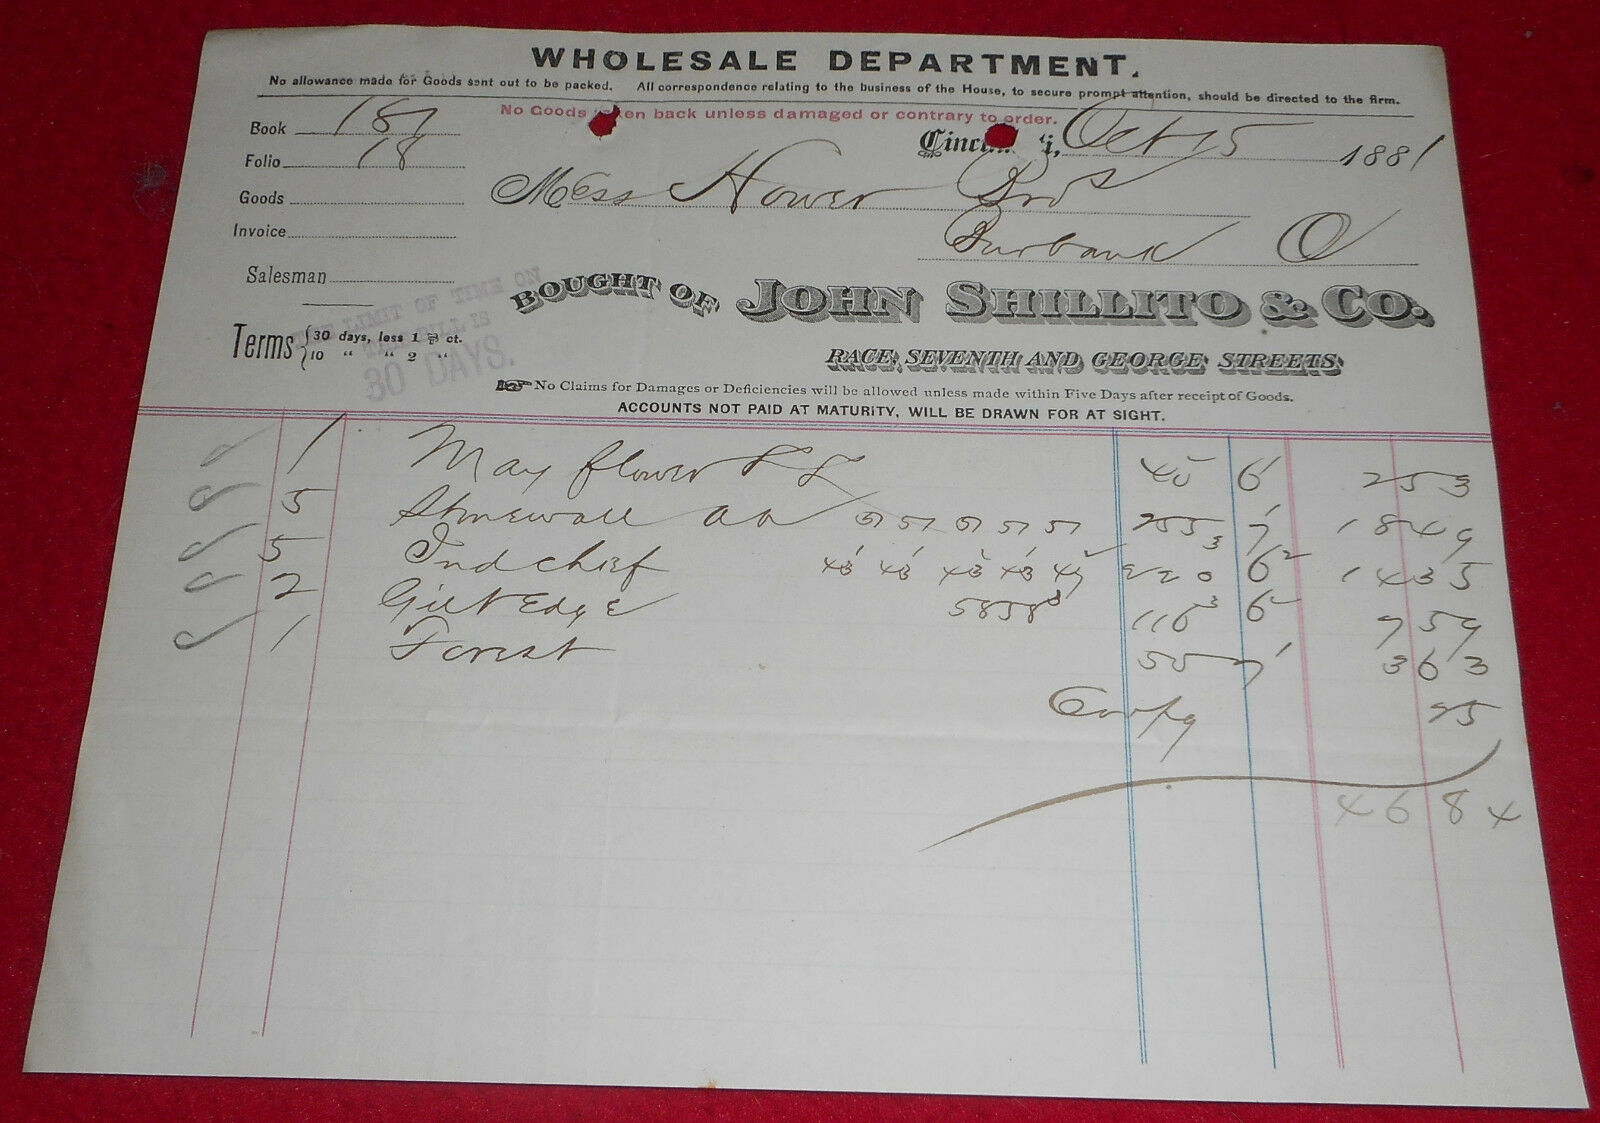 WHOLESALE DEPARTMENT.
No allowance made for Goods sent out to be packed. All correspondence relating to the business of the House, to secure prompt attention, should be directed to the firm.
No Goods en back unless damaged or contrary to order.
Book 187
Folio 18
Goods
Invoice
Salesman
Cinc i, Oct 15 1881
Mess Hower Bros
Burbank O
BOUGHT OF JOHN SHILLITO & CO.
RACE, SEVENTH AND GEORGE STREETS
THE LIMIT OF TIME ON
THIS BILL IS
30 DAYS.
Terms { 30 days, less 1 ct.
10 " " 2 "
No Claims for Damages or Deficiencies will be allowed unless made within Five Days after receipt of Goods.
ACCOUNTS NOT PAID AT MATURITY, WILL BE DRAWN FOR AT SIGHT.
1 May flower 40 6 253
5 Stonewall 51 51 51 51 51 255 7 1849
5 Ind chief 220 6 1435
2 Gilt Edge 58 58 116 6 759
1 Forest 50 7 363
25
4684